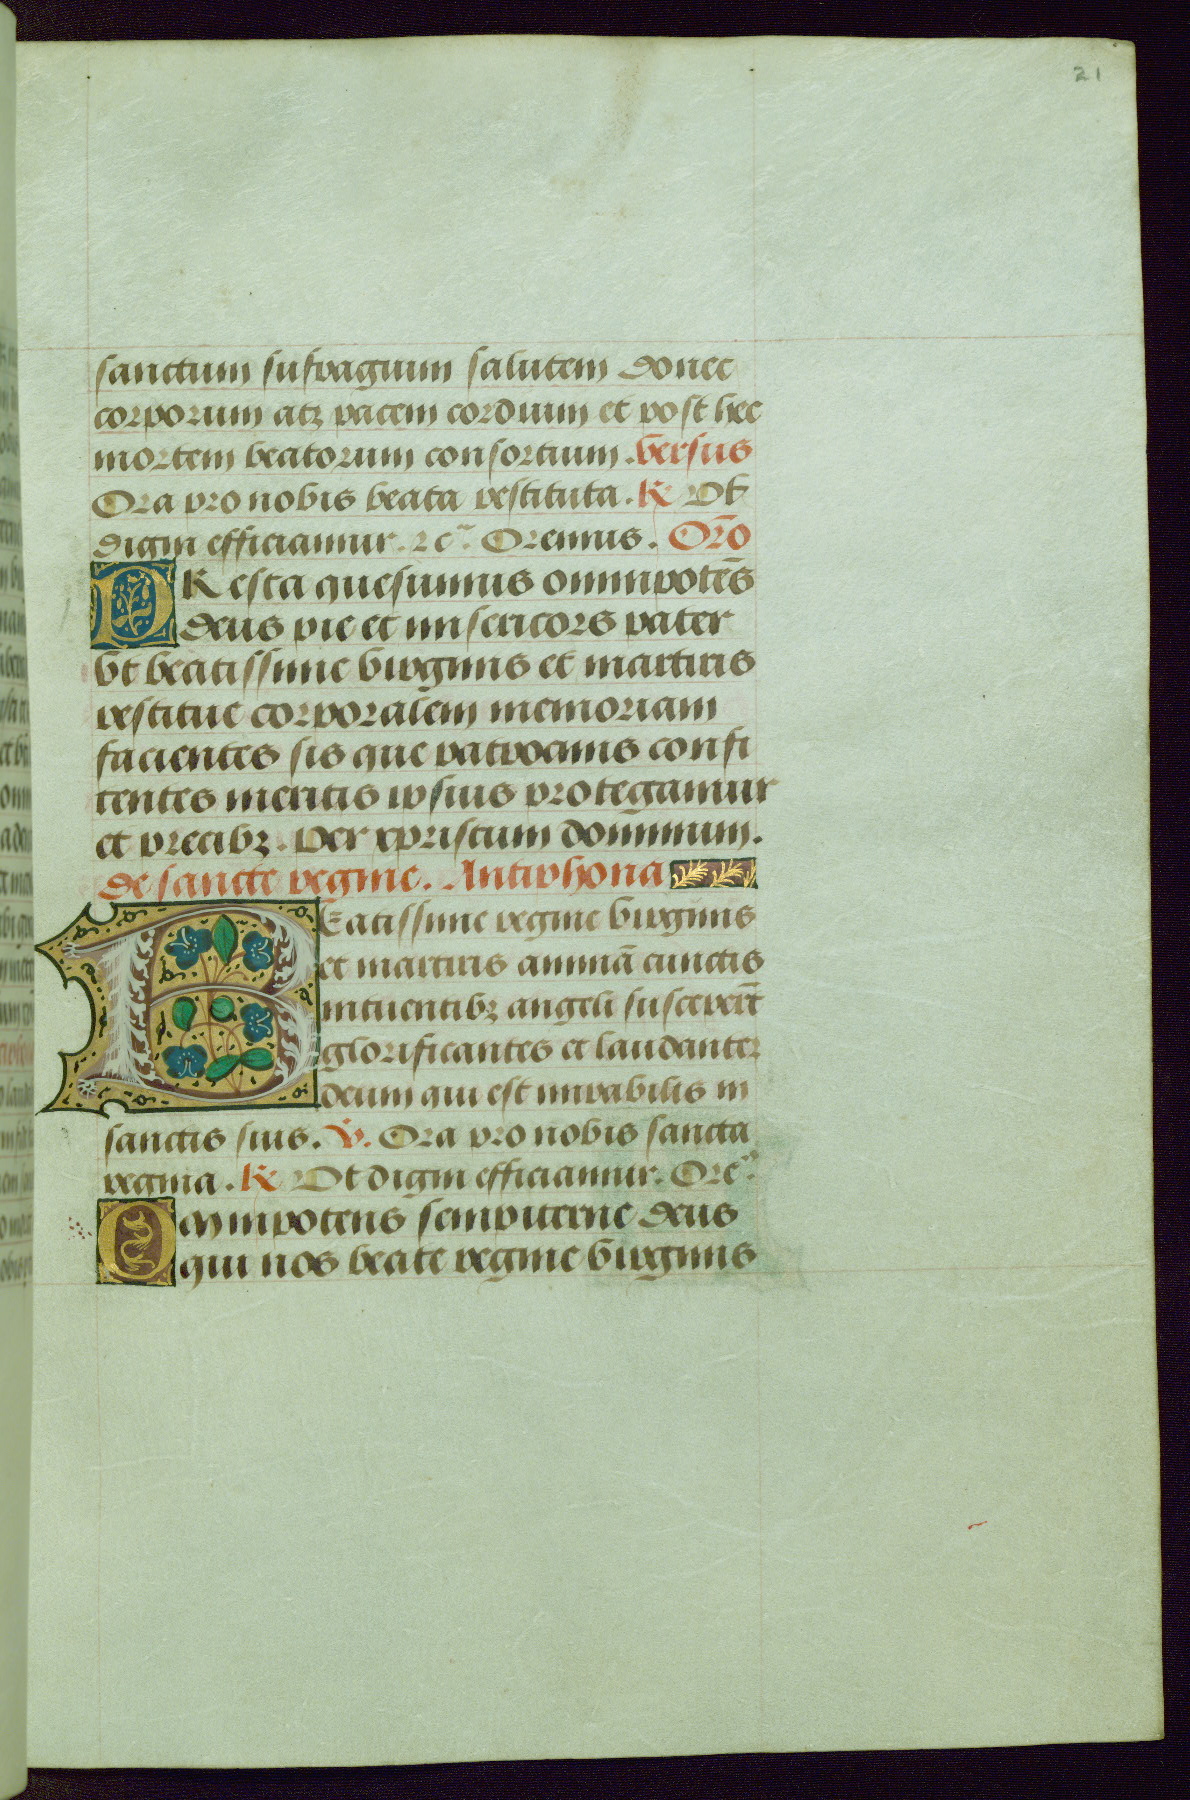 21
sanctum sufragium salutem donec
corporum atqz pacem cordium et post hec
mortem beatorum consortium. versus
Ora pro nobis beata restituta. R Ut
digni efficiamur. rc̃. Oremus. Orõ
PResta quesumus omnipotẽs
deus pie et misericors pater
vt beatissime virginis et martiris
restitue corporalem memoriam
facientes sis que patrocinis confi
tentes meritis ipsius protegamur
et precibz. Per xpristum dominum.
De sancte regine. Antiphona
BEatissime regine virginis
et martiris animã cunctis
intuentibz angeli susceperũt
glorificantes et laudantes
deum qui est mirabilis in
sanctis suis. V. Ora pro nobis sancta
regina. R Ut digni efficiamur. Ore᷑.
OMnipotens sempiterne deus
qui nos beate regine virginis